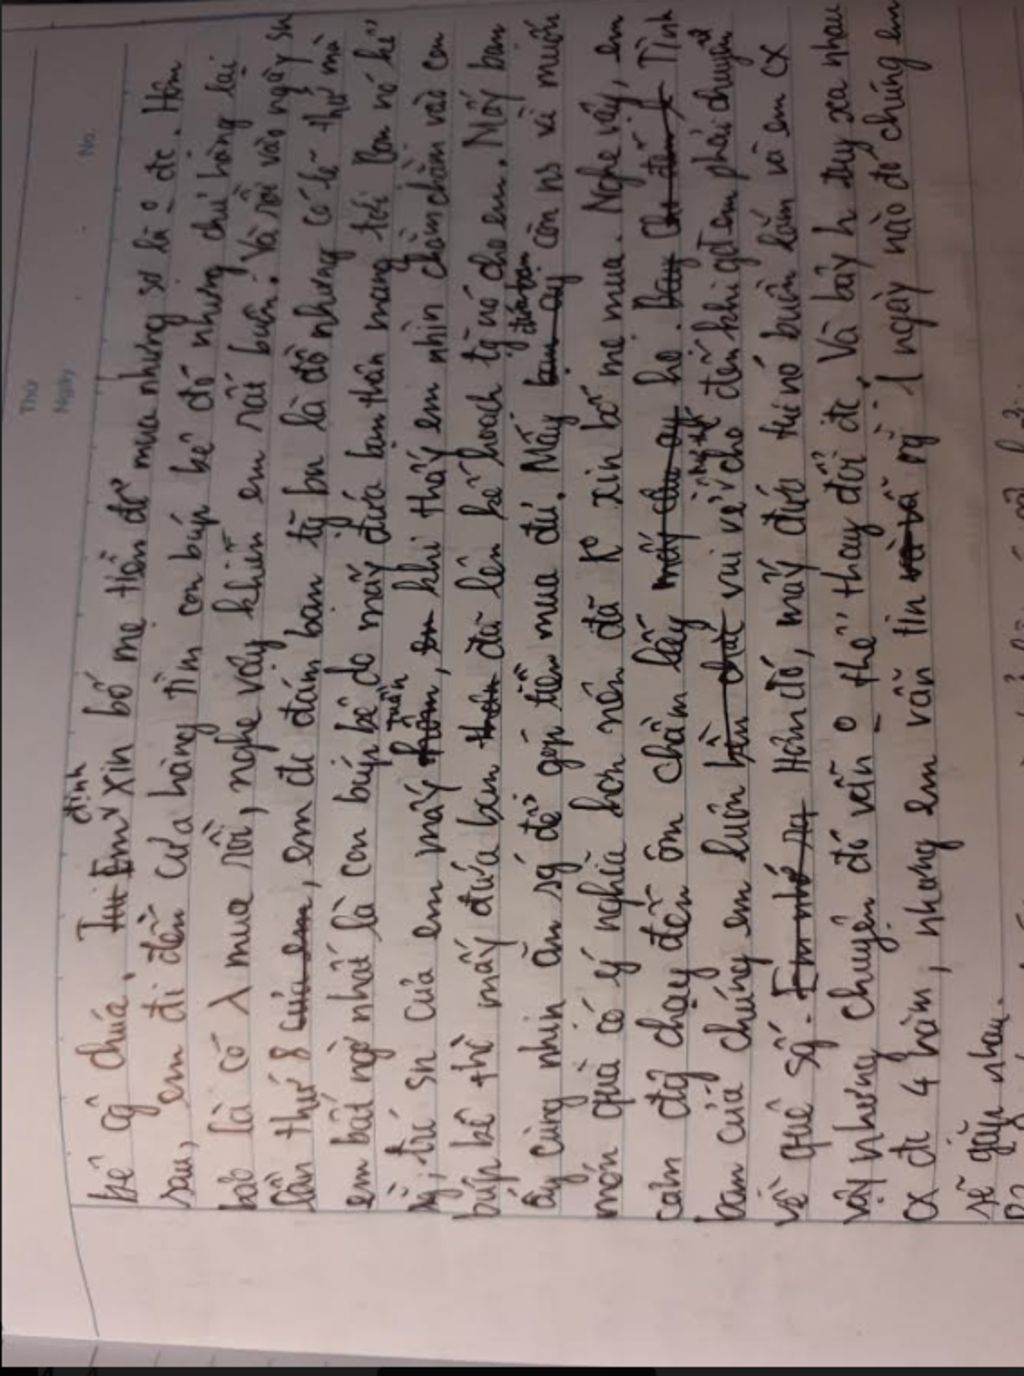 Thứ
Ngày
No.
định
bê cô chúa. Thì Em xin bố mẹ tiền để mua nhưng sợ là o đc. Hôm
sau, em đi đến cửa hàng tìm con búp bê đó nhưng chú hàng lại
bảo là có mua rồi, nghe vậy khiến em rất buồn. Và rồi vào ngày sn
lần thứ 8 của em, em đc đám bạn tặng là đồ nhưng có lẽ thứ mà
em bất ngờ nhất là con búp bê do mấy đứa bạn thân mang tới. Bọn nó kể
trc sn của em mấy tuần, em khi thấy em nhìn chằm chằm vào con
búp bê thì mấy đứa bạn thân đã lên kế hoạch tặng nó cho em. Mấy bạn
ấy cùng nhịn ăn sg để góp tiền mua đủ. Mấy đứa bạn bạn ấy còn ns vì muốn
món quà có ý nghĩa hơn nên đã ko xin bố mẹ mua. Nghe vậy, em
cảm động chạy đến ôm chầm lấy mấy cậu ấy họ. Tình
bạn của chúng em luôn vui vẻ như thế cho đến khi gđ em phải chuyển
về quê sống. Em nhớ ra Hôm đó, mấy đứa tụi nó buồn lắm và em cx
vậy nhưng chuyện đó vẫn o thể thay đổi đc. Và bây h tuy xa nhau
cx đc 4 năm, nhưng em vẫn tin rằng 1 ngày nào đó chúng em
sẽ gặp nhau.